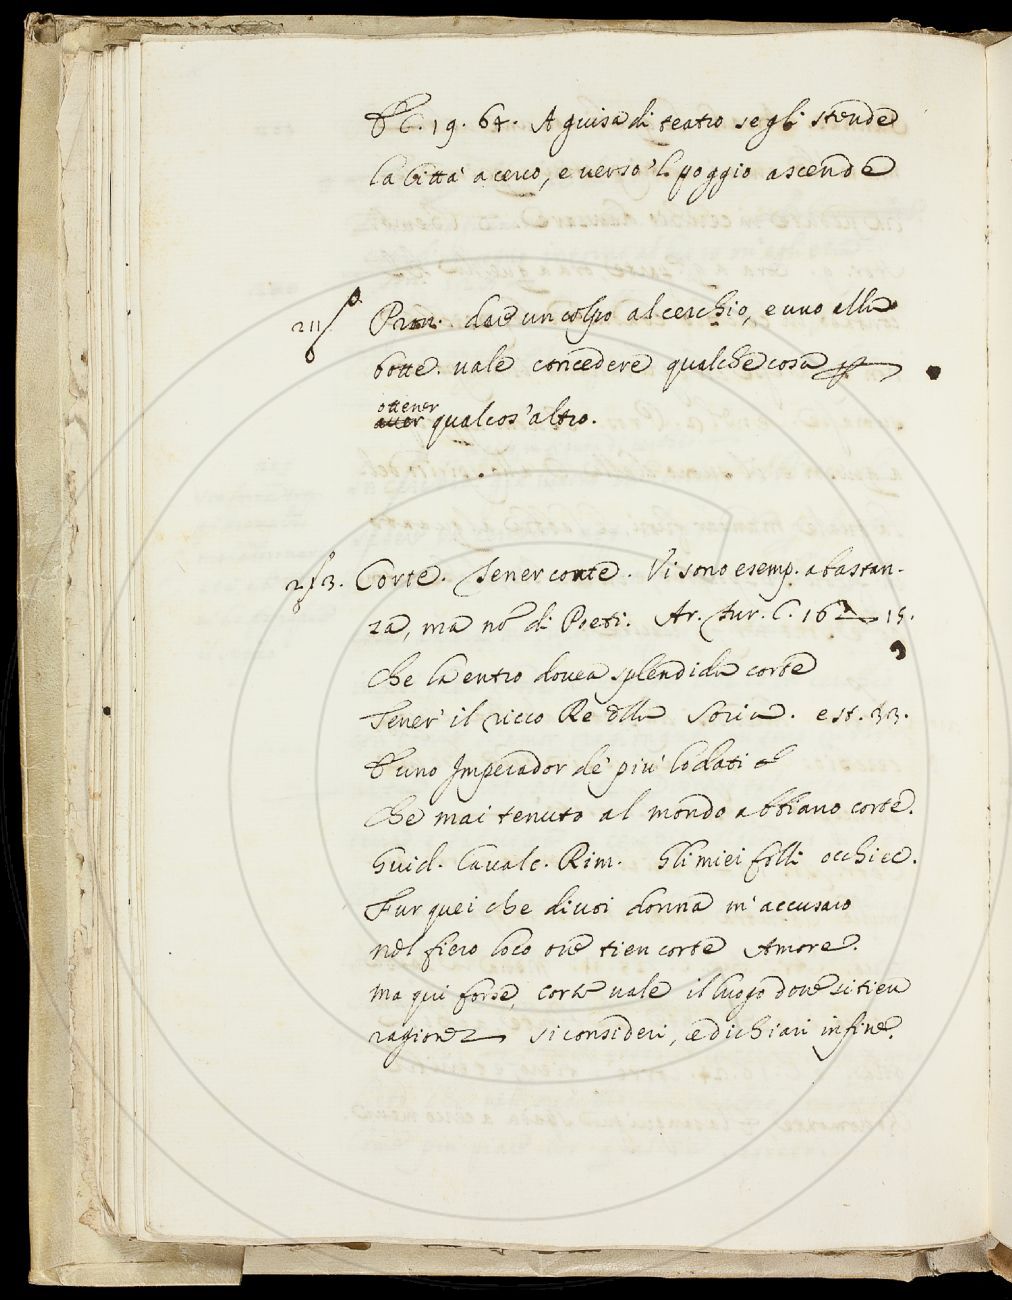 E C. 19. 64. A guisa di teatro se gli stende
la Città a cerco, e verso 'l poggio ascende
211 Prov. dare un colpo al cerchio, e uno alla
botte. vale concedere qualche cosa
ottener
aver qualcos'altro.
213. Corte. Tener corte. Vi sono esemp. a bastan-
za, ma nõ di Poeti. Ar. Fur. C. 16 15.
Che là entro dovea splendida corte
Tener' il ricco Re della Soria. e st. 33.
E uno Imperador de' più lodati
Che mai tenuto al mondo abbiano corte.
Guid. Cavalc. Rim. Gli miei folli occhi ec.
Fur quei che di voi donna m'accusaro
nel fiero loco ove tien corte Amore.
ma qui forse, corte vale il luogo dove si tien
ragione si consideri, e dichiari in fine.